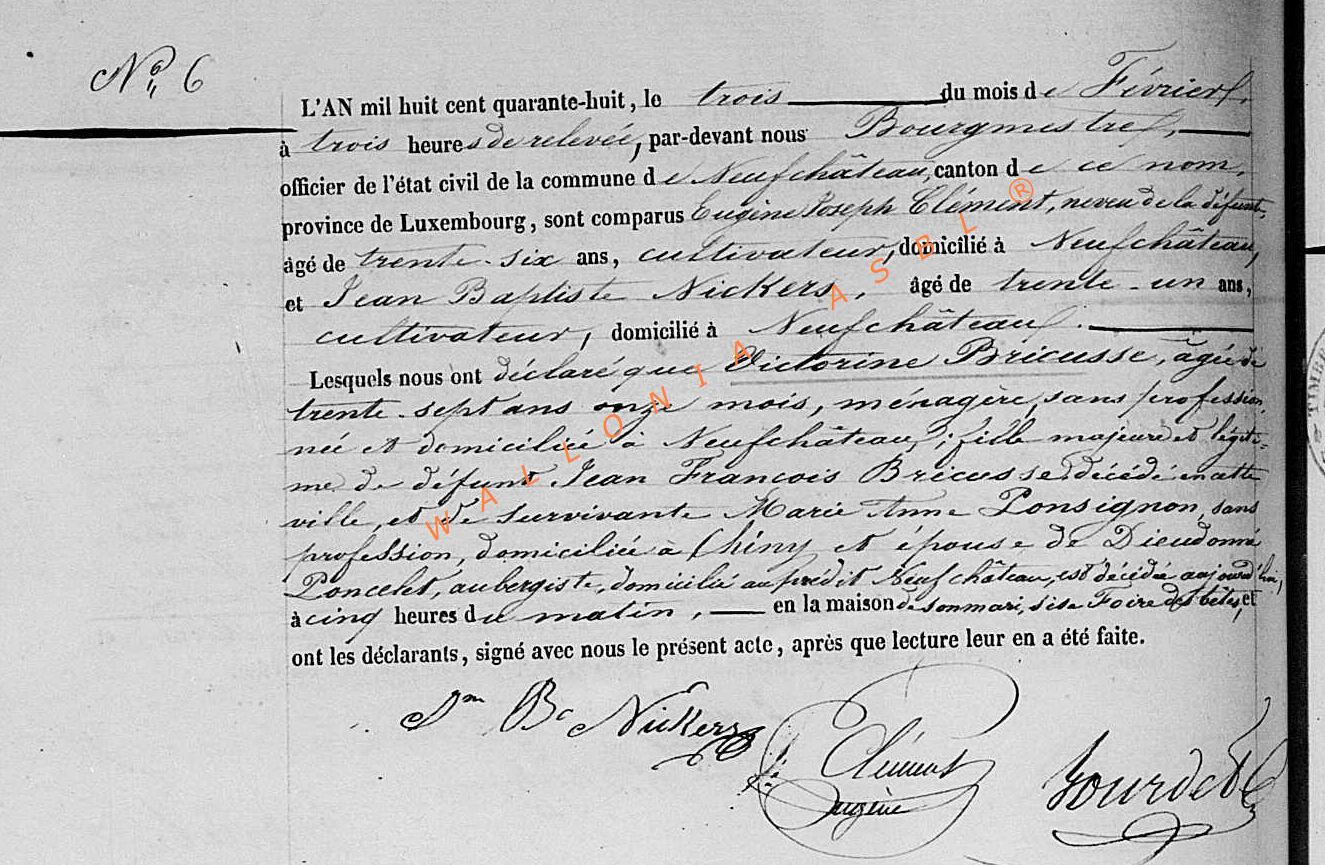 N° 6
L'AN mil huit cent quarante-huit, le trois du mois de Février,
à trois heures de relevée, par-devant nous Bourgmestre,
officier de l'état civil de la commune de Neufchâteau, canton de ce nom,
province de Luxembourg, sont comparus Eugène Joseph Clément, neveu de la défunte,
âgé de trente-six ans, cultivateur, domicilié à Neufchâteau,
et Jean Baptiste Nickers, âgé de trente-un ans,
cultivateur, domicilié à Neufchâteau.
Lesquels nous ont déclaré que Victorine Bricusse, âgée de
trente-sept ans onze mois, ménagère, sans profession,
née et domiciliée à Neufchâteau; fille majeure et légiti-
me de défunt Jean François Bricusse, décédé en cette
ville, et de survivante Marie Anne Ponsignon, sans
profession, domiciliée à Chiny et épouse de Dieudonné
Poncelet, aubergiste, domicilié au prédit Neufchâteau, est décédée aujourd'hui,
à cinq heures du matin, en la maison de son mari, sise Foire des bêtes, et
ont les déclarants, signé avec nous le présent acte, après que lecture leur en a été faite.
Nickers
Clément
Eugène
Bourdet
WALLONIA ASBL ®
TIMBRE